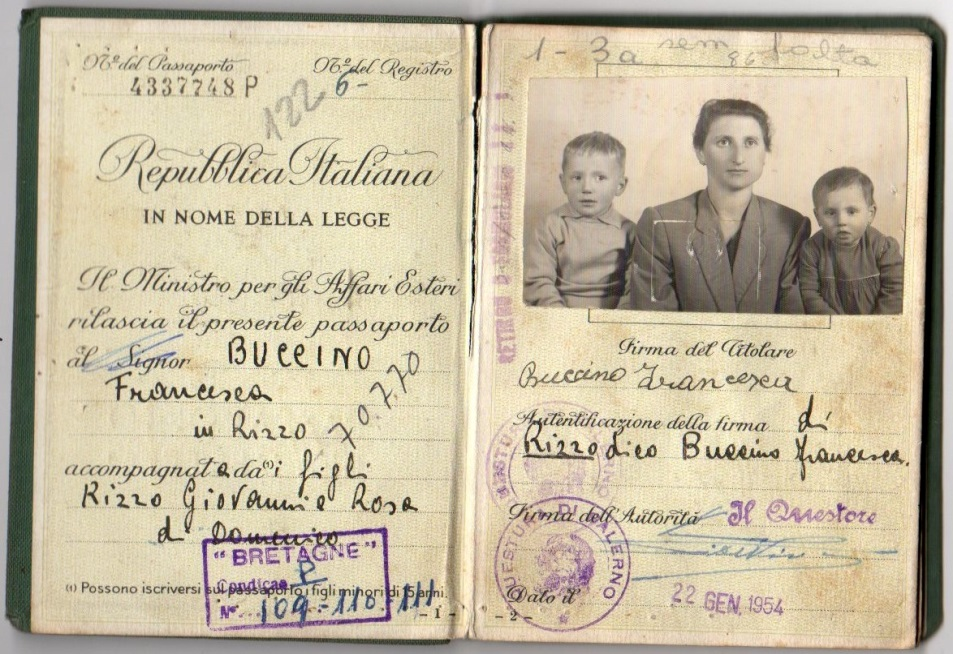 Nº del Passaporto Nº del Registro
4337748 P
6-
122
Repubblica Italiana
IN NOME DELLA LEGGE
Il Ministro per gli Affari Esteri
rilascia il presente passaporto
al Signor BUCCINO
Francesca
in Rizzo
accompagnata da⁽¹⁾ i figli
Rizzo Giovanni e Rosa
di Domenico
"BRETAGNE"
Condicao P
Nº 109-110 111
(1) Possono iscriversi sul passaporto i figli minori di 15 anni.
- 1 -
1 - 3a sem folta
86
Firma del Titolare
Buccino Francesca
Autentificazione della firma di
Rizzo dico Buccino Francesca.
Firma dell'Autorità Il Questore
QUESTURA DI SALERNO
Dato il 22 GEN. 1954
- 2 -